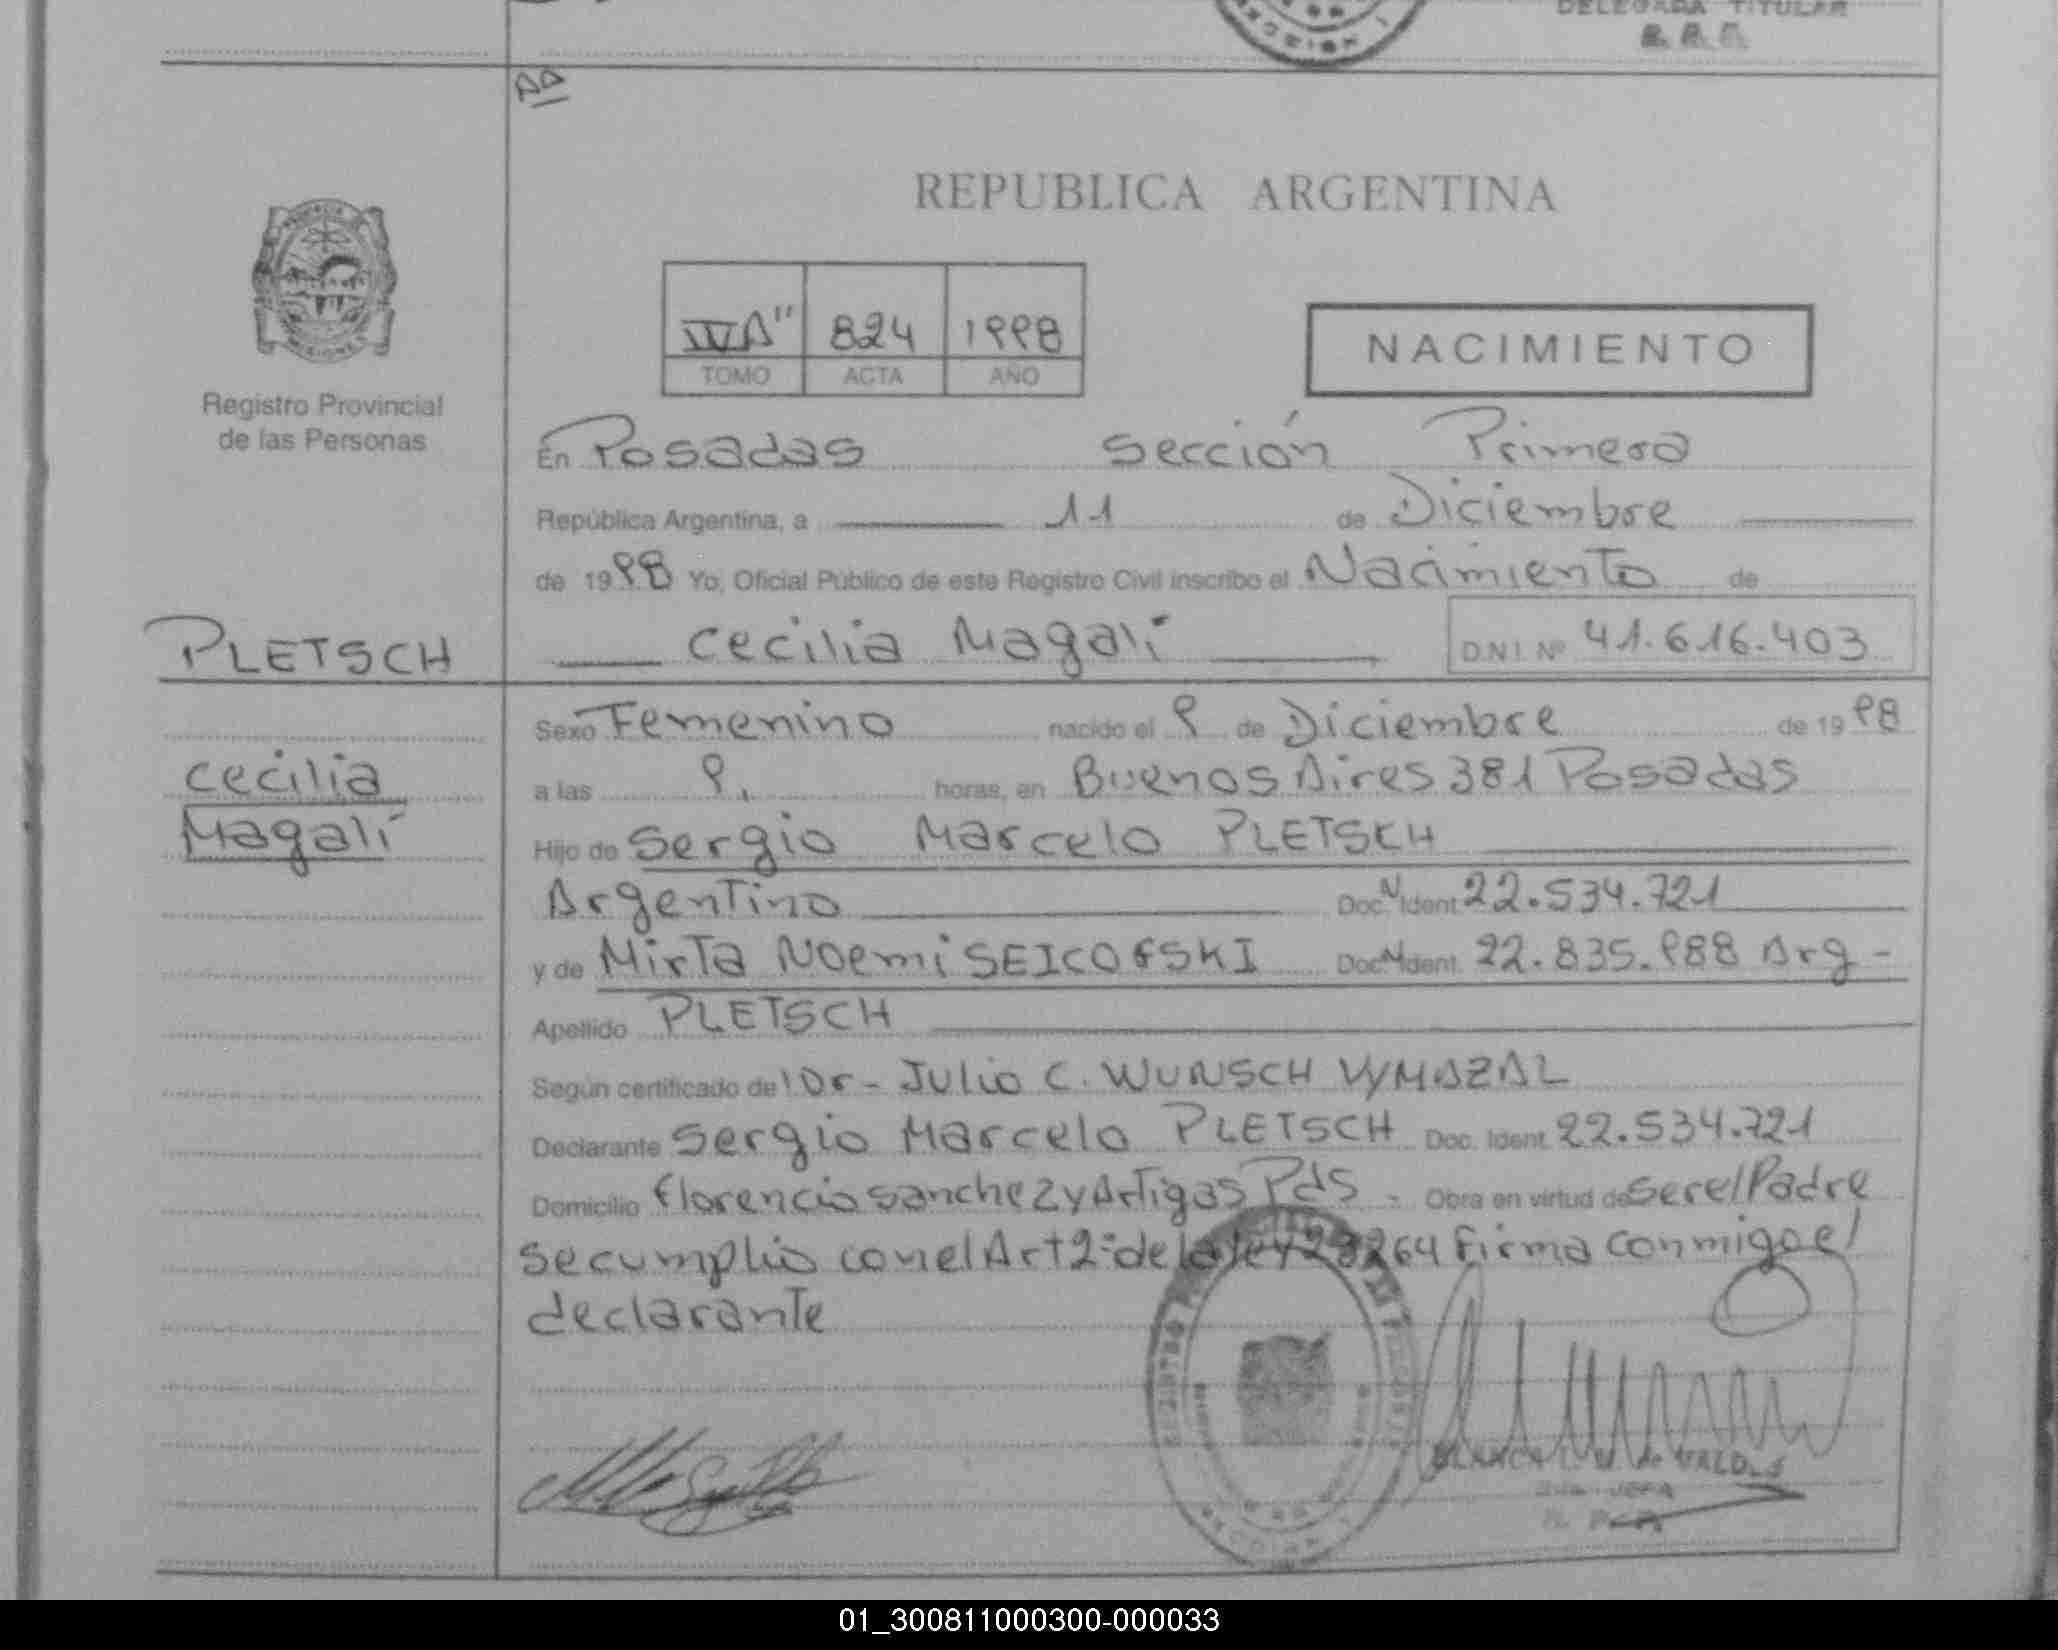 DELEGADA TITULAR
REPUBLICA ARGENTINA
824 1998
TOMO ACTA AÑO
NACIMIENTO
MISIONES
Registro Provincial
de las Personas
En Posadas Sección Primera
República Argentina, a 11 de Diciembre
de 1998 Yo, Oficial Público de este Registro Civil inscribo el Nacimiento de
PLETSCH
Cecilia Magalí D.N.I. Nº 41.616.403
Sexo Femenino nacido el 9 de Diciembre de 1998
Cecilia
Magalí
a las 9. horas, en Buenos Aires 381 Posadas
Hijo de Sergio Marcelo PLETSCH
Argentino Doc. N Ident 22.534.721
y de Mirta Noemi SEICOFSKI Doc. N Ident. 22.835.988 Arg -
Apellido PLETSCH
Según certificado de Dr - Julio C. WUNSCH VYMAZAL
Declarante Sergio Marcelo PLETSCH Doc. Ident. 22.534.721
Domicilio Florencio Sanchez y Artigas Pds - Obra en virtud de ser el Padre
se cumplio con el Art 2º de la ley 23264 Firma conmigo el
declarante
BLANCA de VALDES
JEFA
01_300811000300-000033